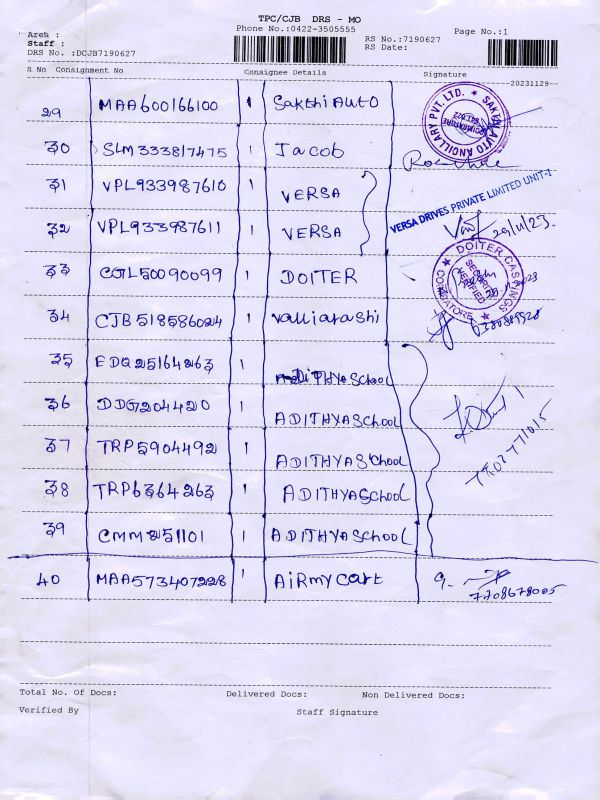 TPC/CJB DRS - MO
Area :
Phone No.:0422-3505555
Page No.:1
Staff :
RS No.:7190627
DRS No. :DCJB7190627
RS Date:
S No Consignment No Consignee Details Signature
20231129
29 MAA600166100 1 Sakthi Auto
SAKTHI AUTO ANCILLARY PVT. LTD.
30 SLM333817475 1 Jacob
31 VPL933987610 1 VERSA
VERSA DRIVES PRIVATE LIMITED UNIT-1
32 VPL933987611 1 VERSA
29/11/23.
33 CGL50090099 1 DOITER
DOITER CASINGS
SECURITY
VERIFIED
COIMBATORE
34 CJB518586024 1 Valliarashi
35 EDQ25164263 1 ADITHYA School
36 DDG204420 1 ADITHYA School
37 TRP5904492 1 ADITHYA School
38 TRP6364263 1 ADITHYA School
39 CMM251101 1 ADITHYA School
40 MAA573407228 1 AiRmy CaRt
7708678005
Total No. Of Docs: Delivered Docs: Non Delivered Docs:
Verified By Staff Signature